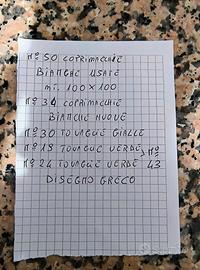 Nº 50 COPRIMACCHIE
BIANCHE USATE
mt. 100X100
Nº 34 COPRIMACCHIE
BIANCHE NUOVE
Nº 30 TOVAGLIE GIALLE
Nº 18 TOVAGLIE VERDE } Nº
Nº 24 TOVAGLIE VERDE 43
DISEGNO GRECO